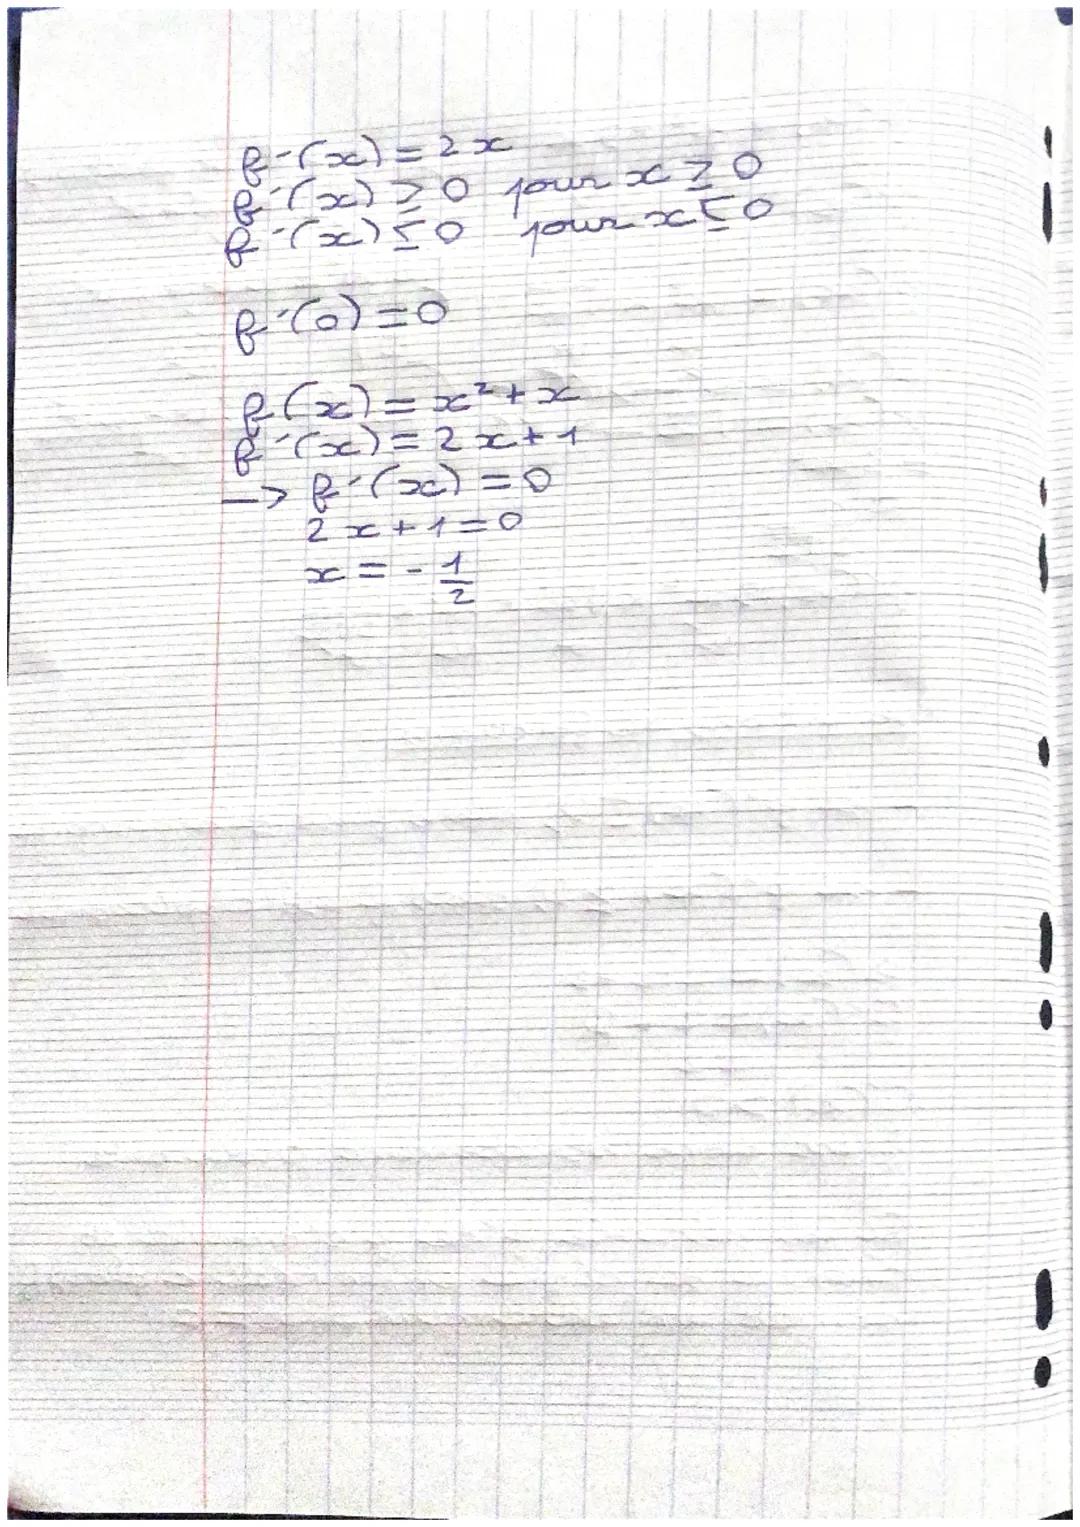 f'(x) = 2x
f'(x) ≥ 0 pour x ≥ 0
f'(x) ≤ 0 pour x ≤ 0
f'(0) = 0
f(x) = x² + x
f'(x) = 2x + 1
-> f'(x) = 0
2x + 1 = 0
x = - 1/2